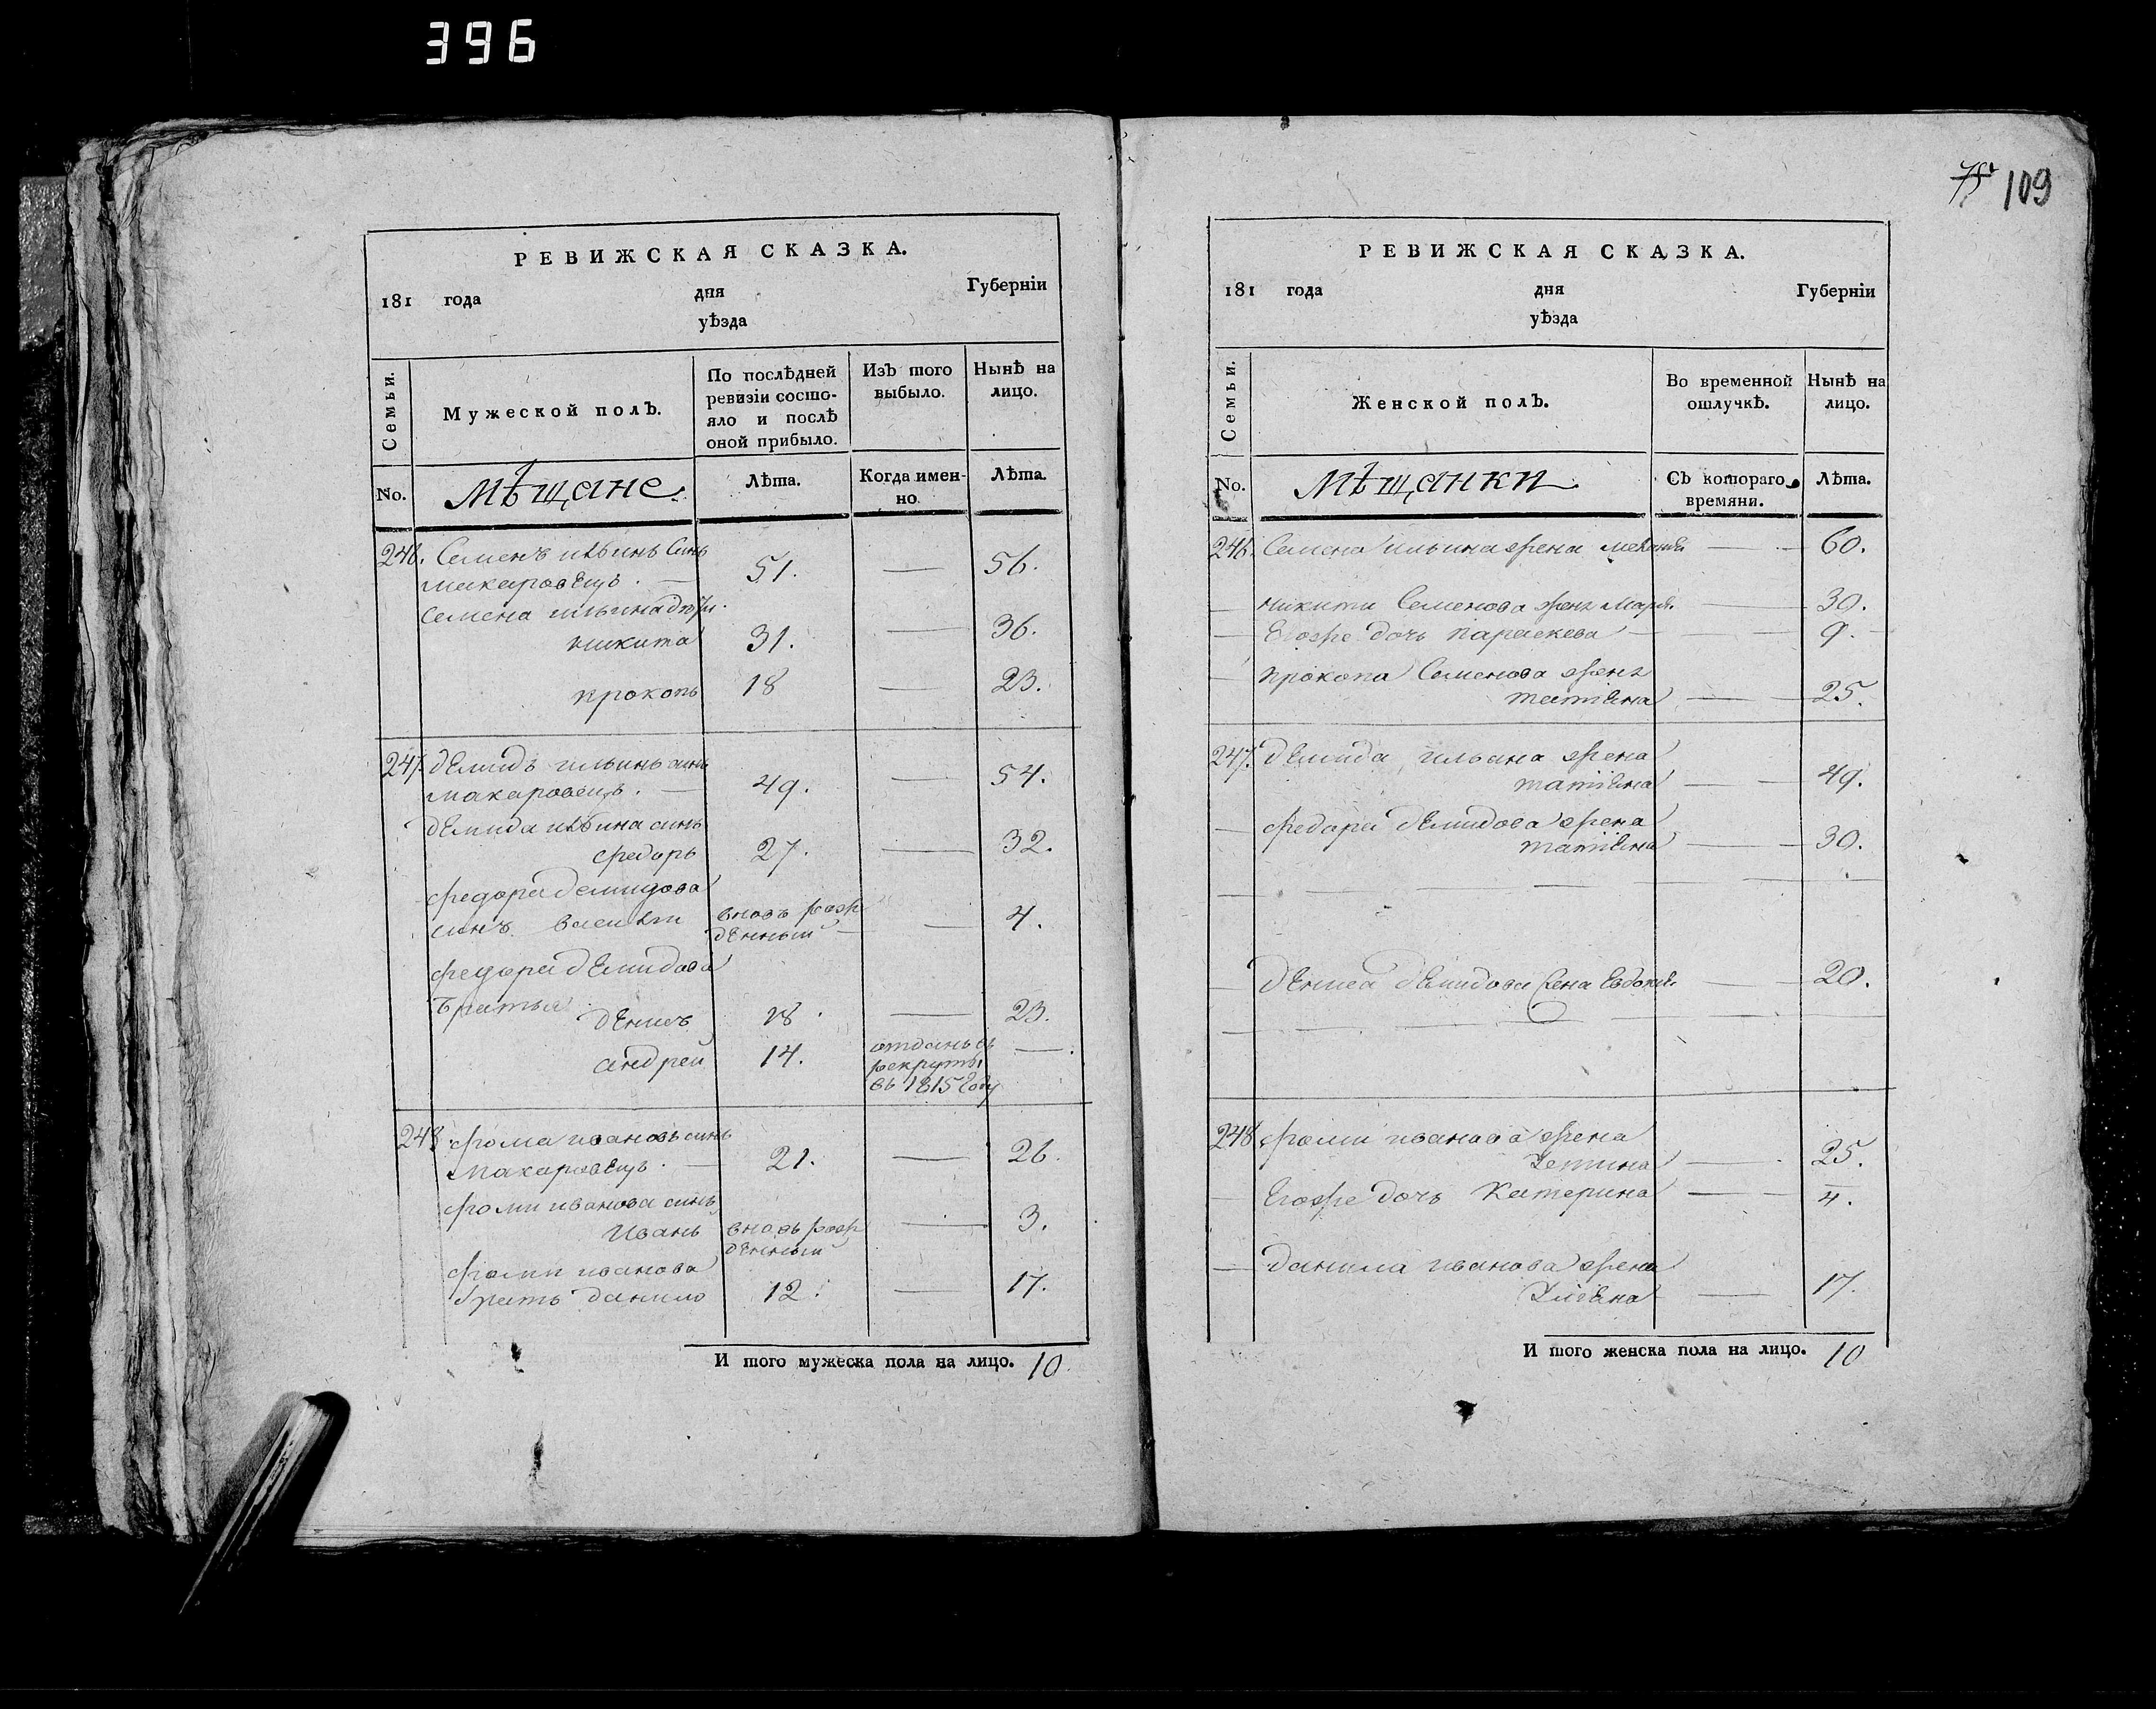 396
РЕВИЖСКАЯ СКАЗКА.
181 года дня Губерніи
уѣзда
Семьи.
Мужеской полъ.
По послѣдней
ревизіи состо-
яло и послѣ
оной прибыло.
Изъ того
выбыло.
Нынѣ на
лицо.
No.
мѣщане.
Лѣта.
Когда имен-
но.
Лѣта.
246. Семенъ ильинъ синъ
макаровецъ. — 51. — 56.
Семена ильина дѣти.
никита 31. — 36.
прокопъ 18 — 23.
247. демидъ ильинъ синъ
макаровецъ. — 49. — 54.
демида ильина синъ
федоръ 27. — 32.
федора демидова
синъ василій вновь рож
денный — — 4.
федора демидова
братья
денисъ 18. — 23.
андрей 14. отданъ въ
рекруты
въ 1815 году — .
248 фома ивановъ синъ
макаровецъ. — 21. — 26.
фоми иванова синъ
иванъ вновь рож
денный — 3.
фоми иванова
братъ данило 12. — 17.
И того мужеска пола на лицо. 10.
75 109
РЕВИЖСКАЯ СКАЗКА.
181 года дня Губерніи
уѣзда
Семьи.
Женской полъ.
Во временной
отлучкѣ.
Нынѣ на
лицо.
No.
мѣщанки.
Съ котораго
времяни.
Лѣта.
246. Семена ильина жена — 60.
— никити Семенова жена Марія. — 30.
— Егоже дочь параскева — 9.
— прокопа Семенова жена
татіана — 25.
247. демида ильина жена
татіана — 49.
— федора демидова жена
татіана — 30.
— дениса демидова жена Евдокія — 20.
248 фоми иванова жена
— 25.
— Егоже дочь Катерина — 4.
— данила иванова жена
— 17.
И того женска пола на лицо. 10